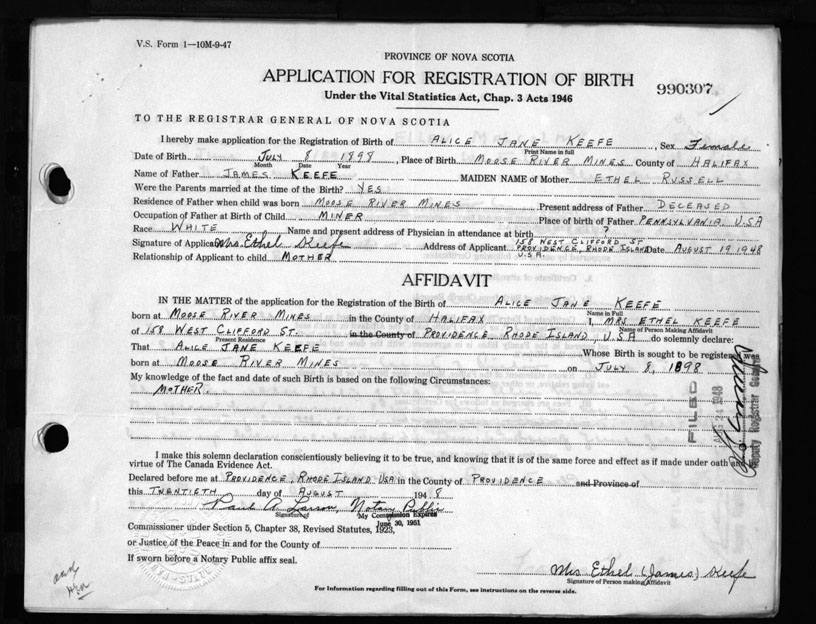 V.S. Form 1—10M-9-47
PROVINCE OF NOVA SCOTIA
APPLICATION FOR REGISTRATION OF BIRTH
990307
Under the Vital Statistics Act, Chap. 3 Acts 1946
TO THE REGISTRAR GENERAL OF NOVA SCOTIA
I hereby make application for the Registration of Birth of ALICE JANE KEEFE, Sex Female
Print Name in full
Date of Birth JULY 8 1898, Place of Birth MOOSE RIVER MINES County of HALIFAX
Month Date Year
Name of Father JAMES KEEFE MAIDEN NAME of Mother ETHEL RUSSELL
Were the Parents married at the time of the Birth? YES
Residence of Father when child was born MOOSE RIVER MINES Present address of Father DECEASED
Occupation of Father at Birth of Child MINER Place of birth of Father PENNSYLVANIA, U.S.A
Race WHITE Name and present address of Physician in attendance at birth ?
Signature of Applicant Mrs. Ethel Keefe Address of Applicant 158 WEST CLIFFORD ST PROVIDENCE, RHODE ISLAND U.S.A. Date AUGUST 19 1948
Relationship of Applicant to child MOTHER
AFFIDAVIT
IN THE MATTER of the application for the Registration of the Birth of ALICE JANE KEEFE
Name in Full
born at MOOSE RIVER MINES in the County of HALIFAX I, MRS ETHEL KEEFE
Name of Person Making Affidavit
of 158 WEST CLIFFORD ST. in the County of PROVIDENCE, RHODE ISLAND, U.S.A do solemnly declare:
Present Residence
That ALICE JANE KEEFE Whose Birth is sought to be registered was
born at MOOSE RIVER MINES on JULY 8, 1898
My knowledge of the fact and date of such Birth is based on the following Circumstances:
MOTHER.
FILED
AUG 24 1948
Deputy Registrar General
I make this solemn declaration conscientiously believing it to be true, and knowing that it is of the same force and effect as if made under oath and
virtue of The Canada Evidence Act.
Declared before me at PROVIDENCE, RHODE ISLAND USA in the County of PROVIDENCE and Province of
this TWENTIETH day of AUGUST 1948
Paul A. Larson, Notary Public
Signature of My Commission Expires
June 30, 1951
Commissioner under Section 5, Chapter 38, Revised Statutes, 1923,
or Justice of the Peace in and for the County of
If sworn before a Notary Public affix seal.
Mrs Ethel (James) Keefe
Signature of Person making Affidavit
For Information regarding filling out of this Form, see instructions on the reverse side.